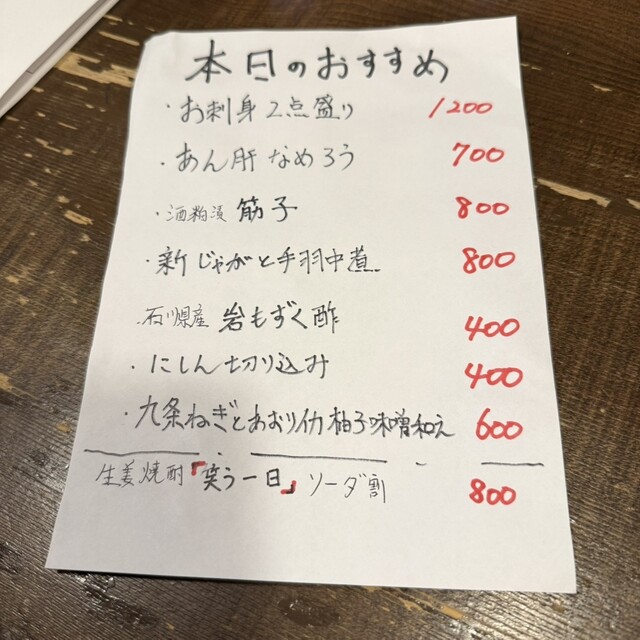 本日のおすすめ
・お刺身2点盛り 1200
・あん肝なめろう 700
・酒粕漬 筋子 800
・新じゃがと手羽中煮 800
・石川県産 岩もずく酢 400
・にしん切り込み 400
・九条ねぎとあおりイカ柚子味噌和え 600
生姜焼酎「笑う一日」ソーダ割 800